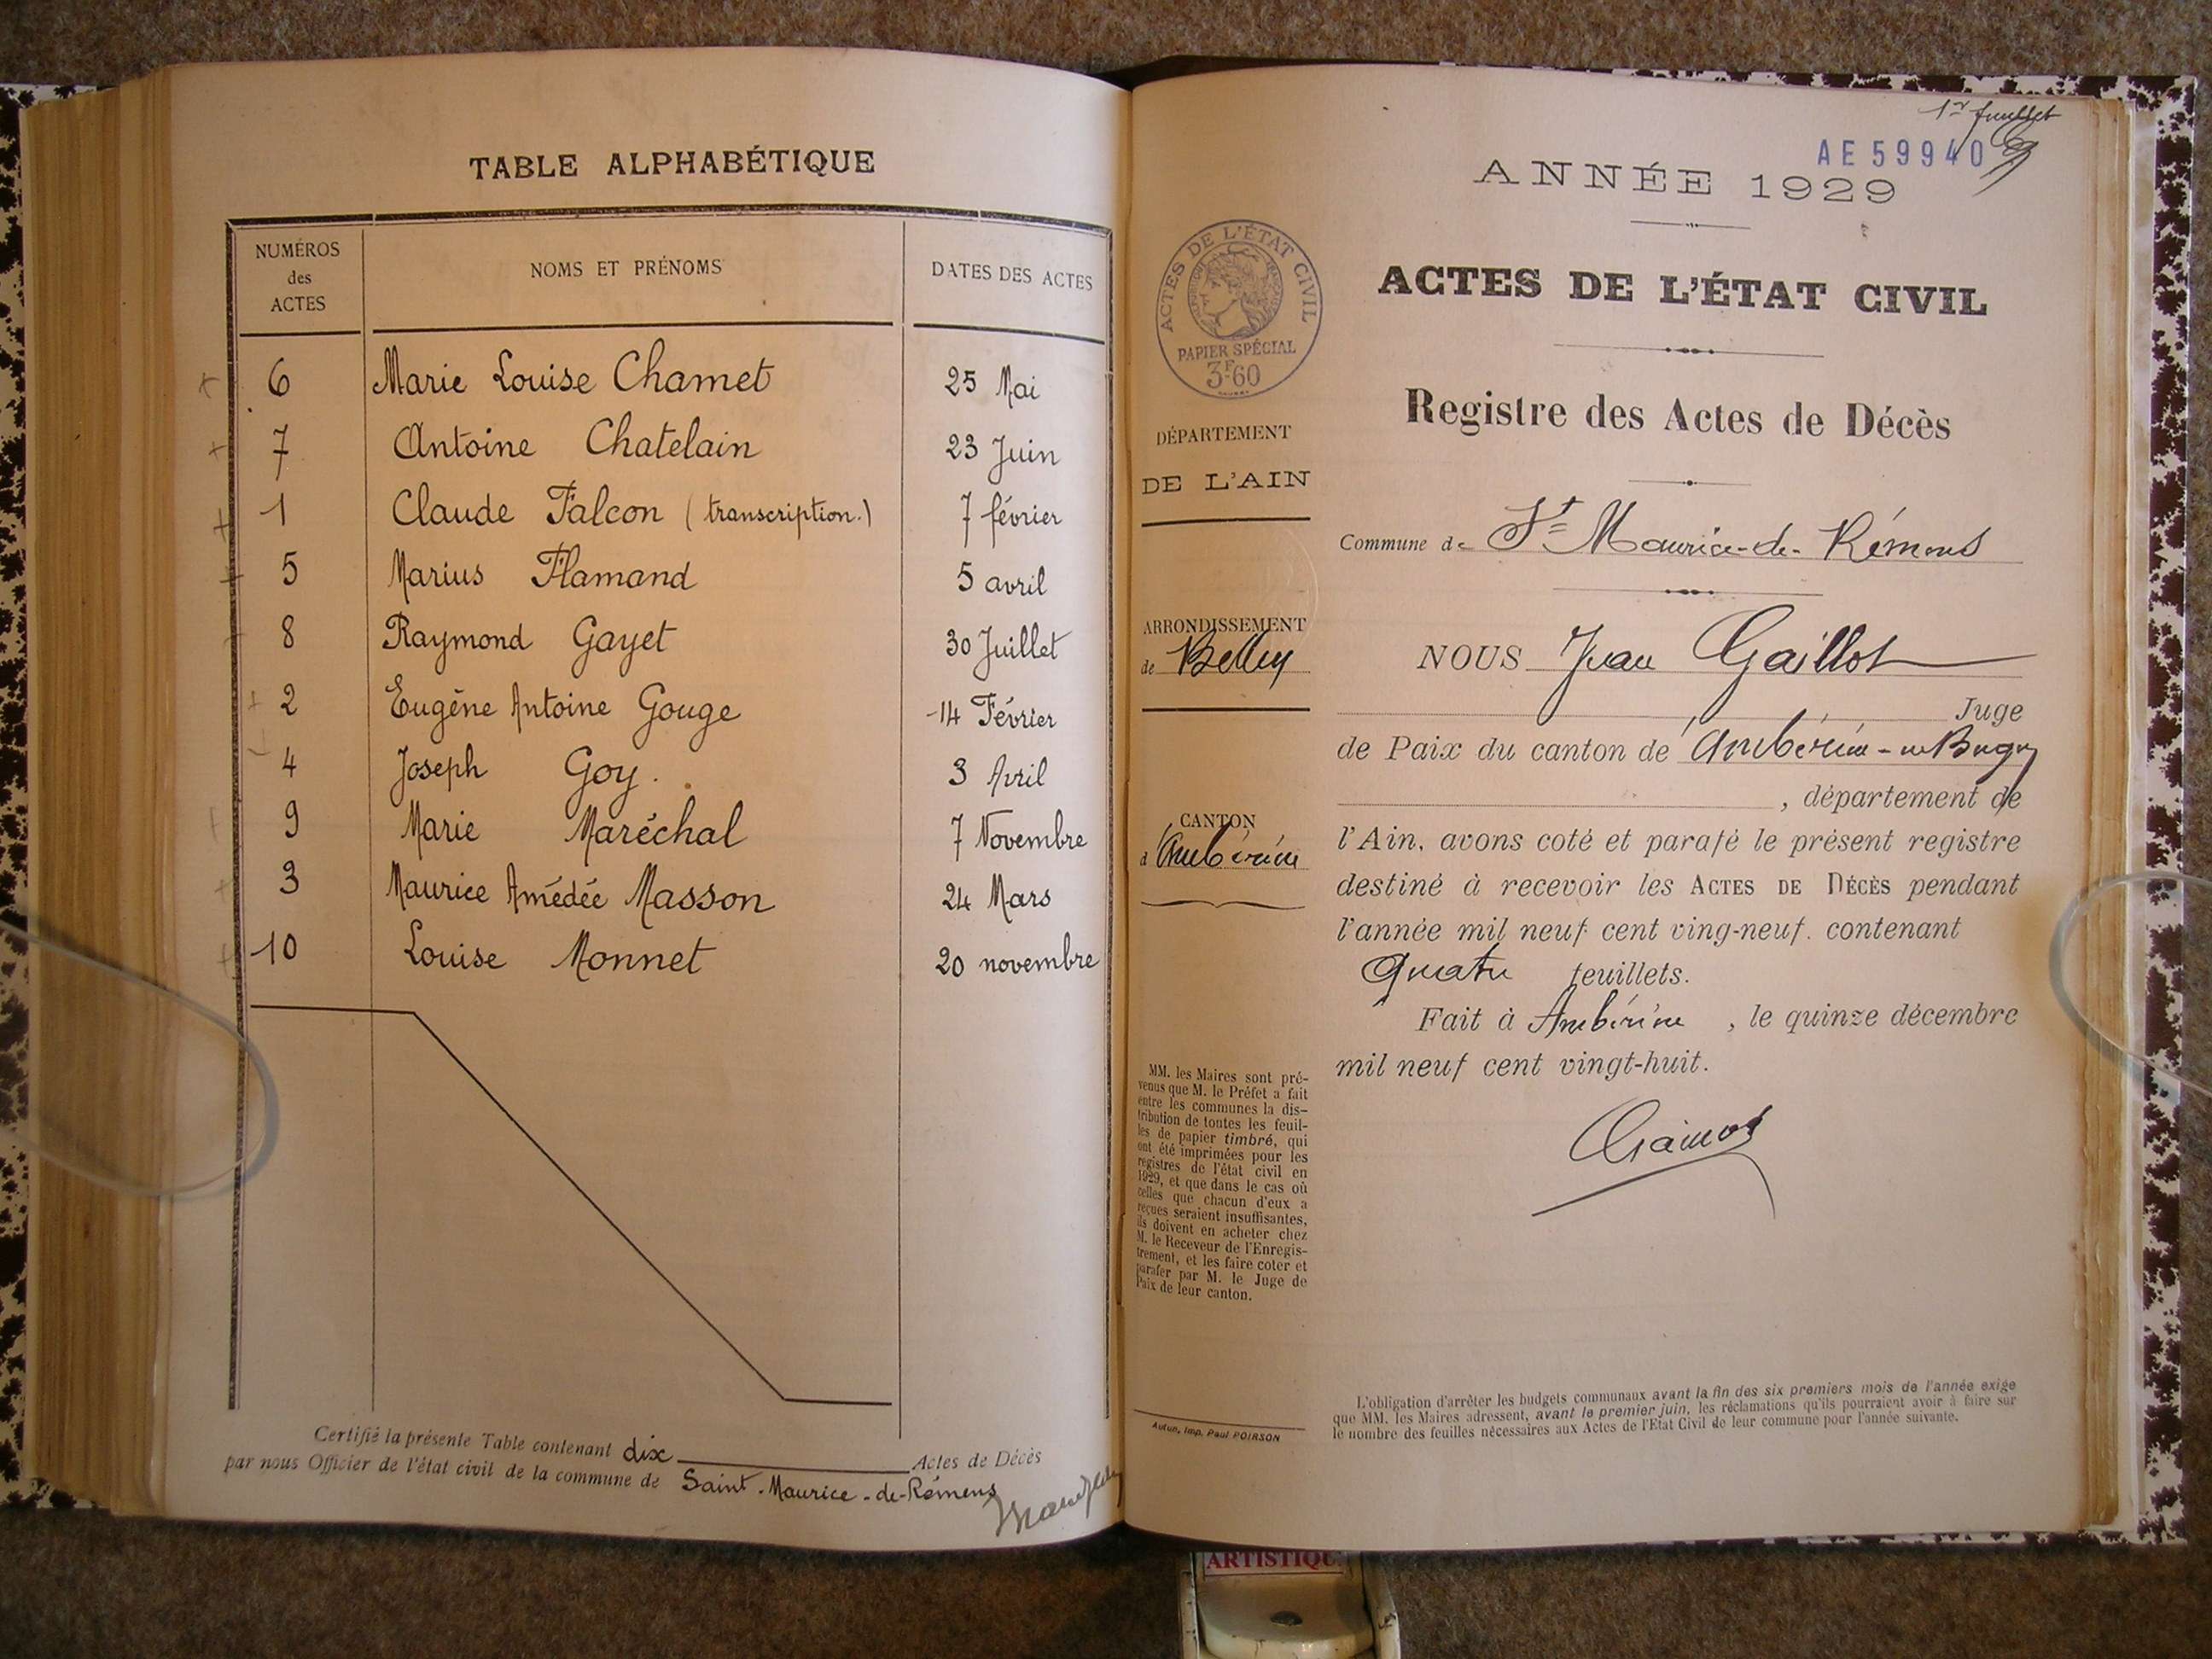 TABLE ALPHABÉTIQUE
NUMÉROS
des
ACTES
NOMS ET PRÉNOMS
DATES DES ACTES
6 Marie Louise Chamet 25 Mai
7 Antoine Chatelain 23 Juin
1 Claude Falcon (transcription.) 7 février
5 Marius Flamand 5 avril
8 Raymond Gayet 30 Juillet
2 Eugène Antoine Gouge 14 Février
4 Joseph Goy. 3 Avril
9 Marie Maréchal 7 Novembre
3 Maurice Amédée Masson 24 Mars
10 Louise Monnet 20 novembre
Certifié la présente Table contenant dix Actes de Décès
par nous Officier de l'état civil de la commune de Saint-Maurice-de-Rémens
1er feuillet
AE 59940
ANNÉE 1929
ACTES DE L'ÉTAT CIVIL
PAPIER SPÉCIAL
3F60
DÉPARTEMENT
DE L'AIN
ARRONDISSEMENT
de Belley
CANTON
d'Ambérieu
MM. les Maires sont pré-
venus que M. le Préfet a fait
entre les communes la dis-
tribution de toutes les feuil-
les de papier timbré, qui
ont été imprimées pour les
registres de l'état civil en
1929, et que dans le cas où
celles que chacun d'eux a
reçues seraient insuffisantes,
ils doivent en acheter chez
M. le Receveur de l'Enregis-
trement, et les faire coter et
parafer par M. le Juge de
Paix de leur canton.
Autun, Imp. Paul POIRSON
ACTES DE L'ÉTAT CIVIL
Registre des Actes de Décès
Commune de St Maurice-de-Rémens
NOUS Jean Gaillot
Juge
de Paix du canton de Ambérieu-en-Bugey
, département de
l'Ain, avons coté et parafé le présent registre
destiné à recevoir les ACTES DE DÉCÈS pendant
l'année mil neuf cent ving-neuf. contenant
Quatre feuillets.
Fait à Ambérieu, le quinze décembre
mil neuf cent vingt-huit.
L'obligation d'arrêter les budgets communaux avant la fin des six premiers mois de l'année exige
que MM. les Maires adressent, avant le premier juin, les réclamations qu'ils pourraient avoir à faire sur
le nombre des feuilles nécessaires aux Actes de l'État Civil de leur commune pour l'année suivante.